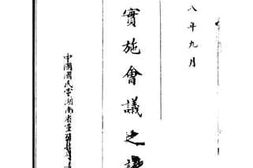 八年九月
實施會議之
中國國民黨湖南省